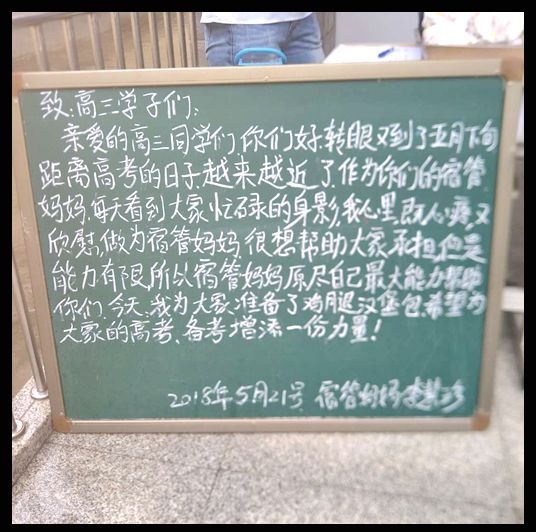 致:高三学子们:
亲爱的高三同学们,你们好,转眼又到了五月下旬
距离高考的日子越来越近了.作为你们的宿管
妈妈,每天看到大家忙碌的身影,我心里既心疼,又
欣慰,做为宿管妈妈,很想帮助大家承担,但是
能力有限,所以宿管妈妈原尽自己最大能力帮助
你们.今天,我为大家准备了鸡腿汉堡包,希望为
大家的高考、备考增添一份力量!
2018年5月21号 宿管妈妈